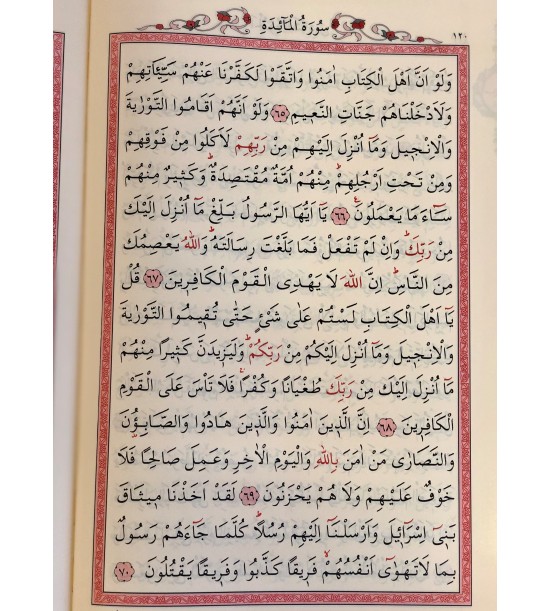 سُورَةُ الْمَٓائِدَةِ
١٢٠
وَلَوْ اَنَّ اَهْلَ الْكِتَابِ اٰمَنُوا وَاتَّقَوْا لَكَفَّرْنَا عَنْهُمْ سَيِّـَٔاتِهِمْ
وَلَاَدْخَلْنَاهُمْ جَنَّاتِ النَّعِيمِ ﴿٦٥﴾ وَلَوْ اَنَّهُمْ اَقَامُوا التَّوْرٰيةَ
وَالْاِنْجِيلَ وَمَٓا اُنْزِلَ اِلَيْهِمْ مِنْ رَبِّهِمْ لَاَكَلُوا مِنْ فَوْقِهِمْ
وَمِنْ تَحْتِ اَرْجُلِهِمْۜ مِنْهُمْ اُمَّةٌ مُقْتَصِدَةٌۜ وَكَث۪يرٌ مِنْهُمْ
سَٓاءَ مَا يَعْمَلُونَ۟ ﴿٦٦﴾ يَٓا اَيُّهَا الرَّسُولُ بَلِّغْ مَٓا اُنْزِلَ اِلَيْكَ
مِنْ رَبِّكَۜ وَاِنْ لَمْ تَفْعَلْ فَمَا بَلَّغْتَ رِسَالَتَهُۜ وَاللّٰهُ يَعْصِمُكَ
مِنَ النَّاسِۜ اِنَّ اللّٰهَ لَا يَهْدِي الْقَوْمَ الْكَافِر۪ينَ ﴿٦٧﴾ قُلْ
يَٓا اَهْلَ الْكِتَابِ لَسْتُمْ عَلٰى شَيْءٍ حَتّٰى تُق۪يمُوا التَّوْرٰيةَ
وَالْاِنْج۪يلَ وَمَٓا اُنْزِلَ اِلَيْكُمْ مِنْ رَبِّكُمْۜ وَلَيَز۪يدَنَّ كَث۪يرًا مِنْهُمْ
مَٓا اُنْزِلَ اِلَيْكَ مِنْ رَبِّكَ طُغْيَانًا وَكُفْرًاۚ فَلَا تَأْسَ عَلَى الْقَوْمِ
الْكَافِر۪ينَ ﴿٦٨﴾ اِنَّ الَّذ۪ينَ اٰمَنُوا وَالَّذ۪ينَ هَادُوا وَالصَّابِؤُ۫نَ
وَالنَّصَارٰى مَنْ اٰمَنَ بِاللّٰهِ وَالْيَوْمِ الْاٰخِرِ وَعَمِلَ صَالِحًا فَلَا
خَوْفٌ عَلَيْهِمْ وَلَا هُمْ يَحْزَنُونَ ﴿٦٩﴾ لَقَدْ اَخَذْنَا م۪يثَاقَ
بَن۪ٓي اِسْرَٓائ۪لَ وَاَرْسَلْنَٓا اِلَيْهِمْ رُسُلًاۜ كُلَّمَا جَٓاءَهُمْ رَسُولٌ
بِمَا لَا تَهْوٰٓى اَنْفُسُهُمْۙ فَر۪يقًا كَذَّبُوا وَفَر۪يقًا يَقْتُلُونَ ﴿٧٠﴾